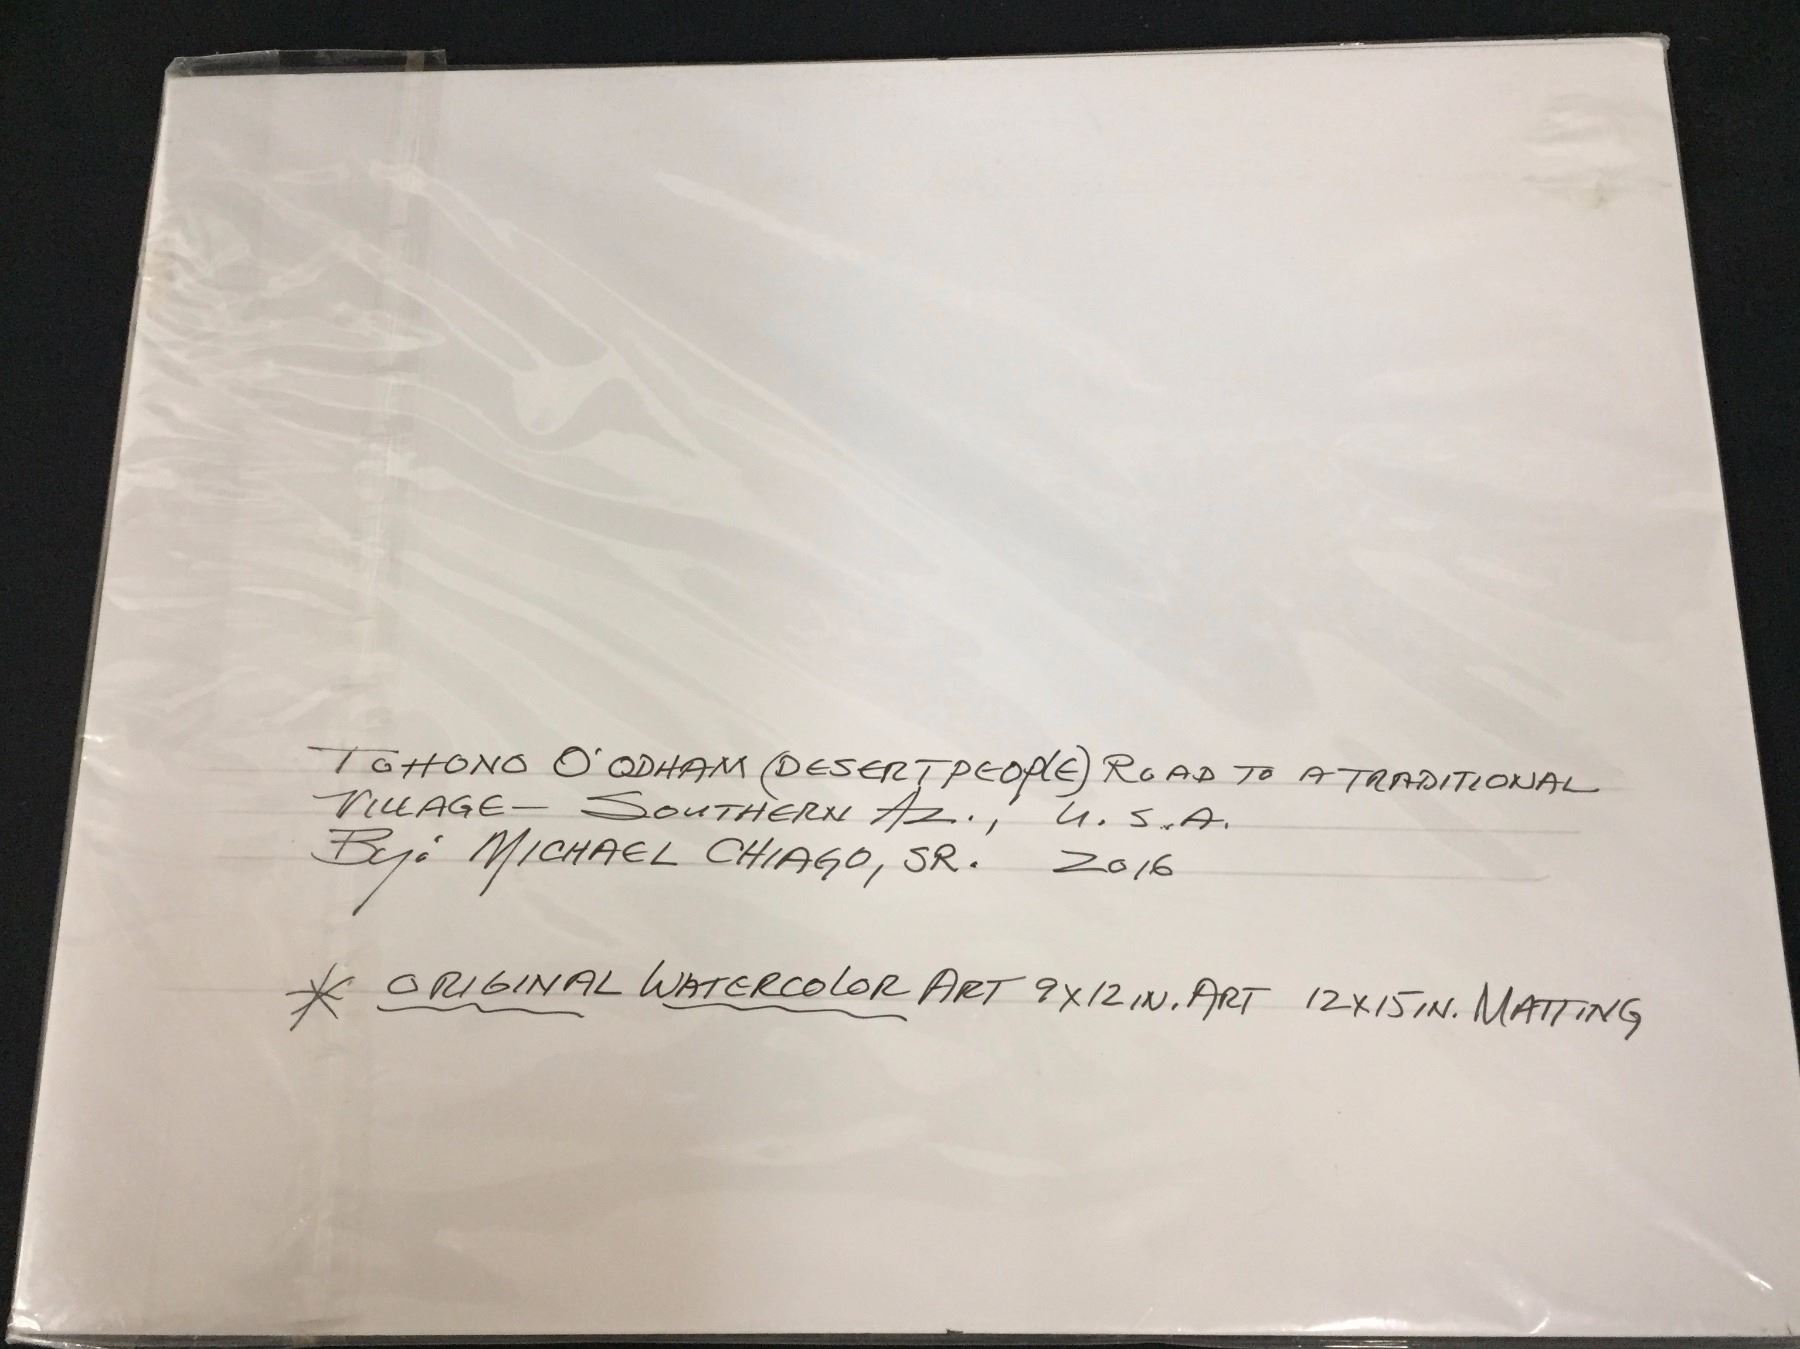 TOHONO O'ODHAM (DESERT PEOPlE) ROAD TO A TRADITIONAL
VILLAGE – SOUTHERN AZ., U.S.A.
By: MICHAEL CHIAGO, SR. 2016
* ORIGINAL WATERCOlOR ART 9X12 IN. ART 12X15 IN. MATTING